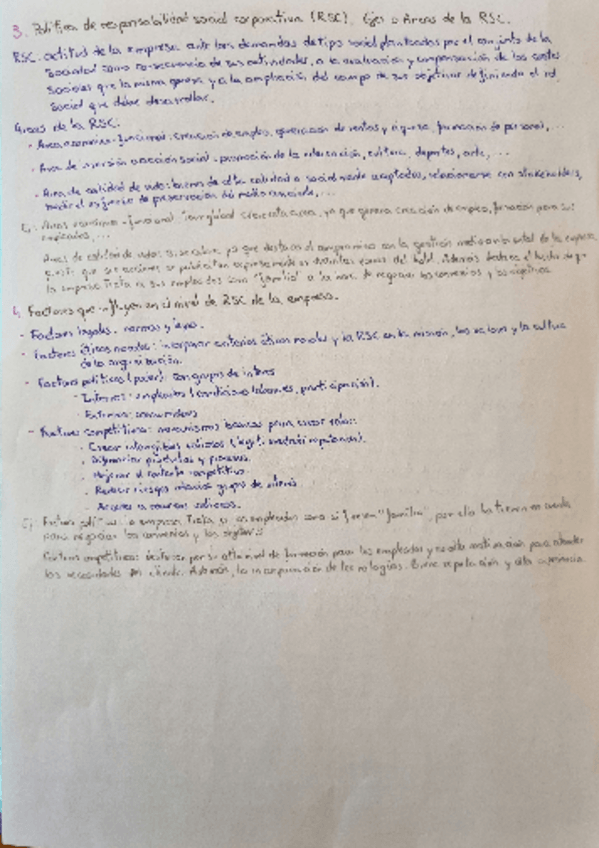 3. Política de responsabilidad social corporativa (RSC). Ejes o Áreas de la RSC.
RSC: actitud de la empresa ante las demandas de tipo social planteadas por el conjunto de la
sociedad como consecuencia de sus actividades, a la evaluación y compensación de los costes
sociales que la misma genera y a la ampliación del campo de sus objetivos definiendo el rol
social que debe desarrollar.
Áreas de la RSC:
- Área económico-funcional: creación de empleo, generación de rentas y riqueza, formación de personal, ...
- Área de inversión o acción social: promoción de la educación, cultura, deportes, arte, ...
- Área de calidad de vida: bienes de alta calidad socialmente aceptados, relacionarse con stakeholders,
medir el esfuerzo de preservación del medio ambiente, ...
Áreas económico-funcional: esta área, ya que genera creación de empleo, formación para sus
empleados, ...
Área de calidad de vida: ya que destaca el compromiso con la gestión medioambiental de la empresa
que sus acciones se publican zonas del hotel. Además destaca el hecho de que
la empresa trata a sus empleados como "familia" a la hora de negociar los convenios y los
4. Factores que influyen en el nivel de RSC de la empresa.
- Factores legales: normas y leyes.
- Factores éticos morales: incorporar criterios éticos morales y la RSC en la misión, los valores y la cultura
de la organización.
- Factores políticos (poder): con grupos de interés
· Internos: empleados (condiciones laborales, participación).
· Externos: consumidores
- Factores competitivos: mecanismos básicos para crear valor:
· Crear intangibles valiosos (legitimidad, reputación).
· Diferenciar productos y procesos.
· Mejorar el contexto competitivo.
· Reducir riesgos relación grupos de interés.
· Acceso a recursos valiosos.
Factores políticos: la empresa trata a sus empleados como si fuesen "familia", por ello los tienen en cuenta
para negociar los convenios y los
Factores competitivos: destacar por su alto nivel de formación para los empleados y su alta motivación para atender
las necesidades del cliente. Además, la incorporación de tecnologías. Buena reputación y alta experiencia.